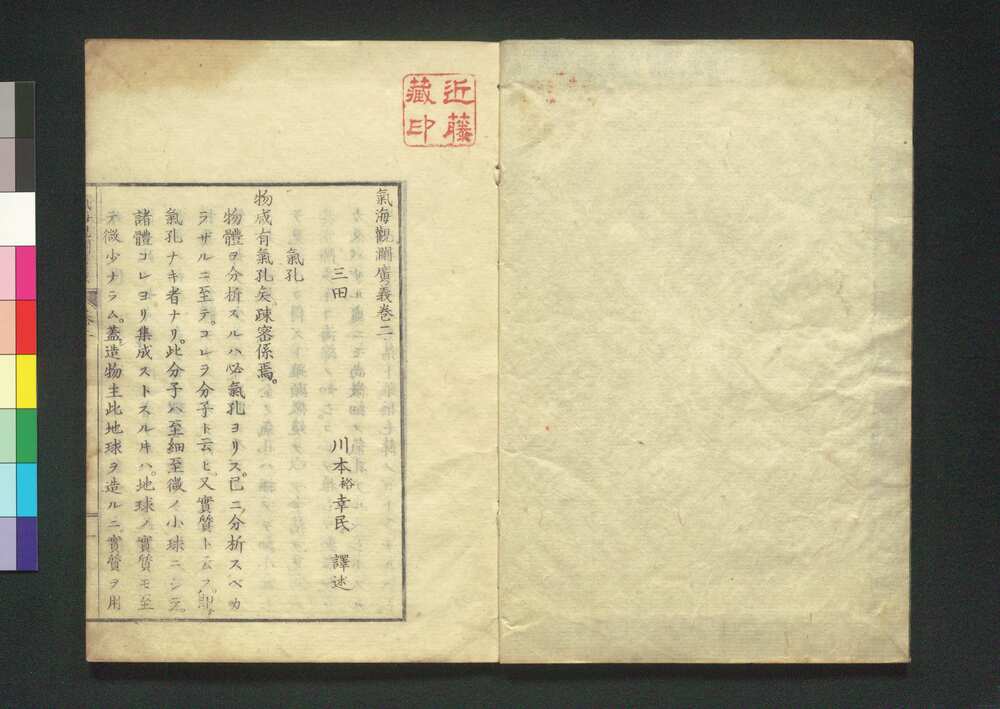 近藤
藏印
氣海觀瀾廣義巻二
三田　川本裕幸民　譯述
氣孔
物咸有氣孔矣、疎密係焉。
物體ヲ分析スルハ必氣孔ヨリス。已ニ分析スベカ
ラザルニ至テ。コレヲ分子ト云ヒ。又實質ト云フ。即チ
氣孔ナキ者ナリ。此分子ハ至細至微ノ小球ニシテ。
諸體コレヨリ集成ストスル𪜈ハ。地球ノ實質モ至
テ微少ナラム。蓋造物主此地球ヲ造ルニ。實質ヲ用